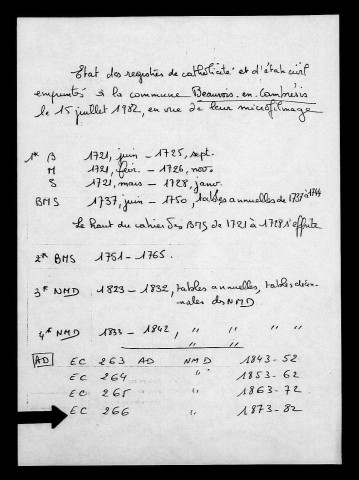 Etat des registres de catholicité et d'état civil
empruntés à la commune Beauvois-en-Cambrésis
le 15 juillet 1982, en vue de leur microfilmage
1* B 1721, juin - 1725, sept.
M 1721, févr. - 1726, nov.
S 1721, mars - 1728, janv.
BMS 1737, juin - 1750, tables annuelles de 1737 à 1744
Le haut du cahier des BMS de 1721 à 1728 s'effrite
2* BMS 1751 - 1765.
3* NMD 1823 - 1832, tables annuelles, tables décen-
nales des NMD
4* NMD 1833 - 1842, " " "
AD EC 263 AD NMD 1843-52
EC 264 " 1853-62
EC 265 " 1863-72
EC 266 " 1873-82